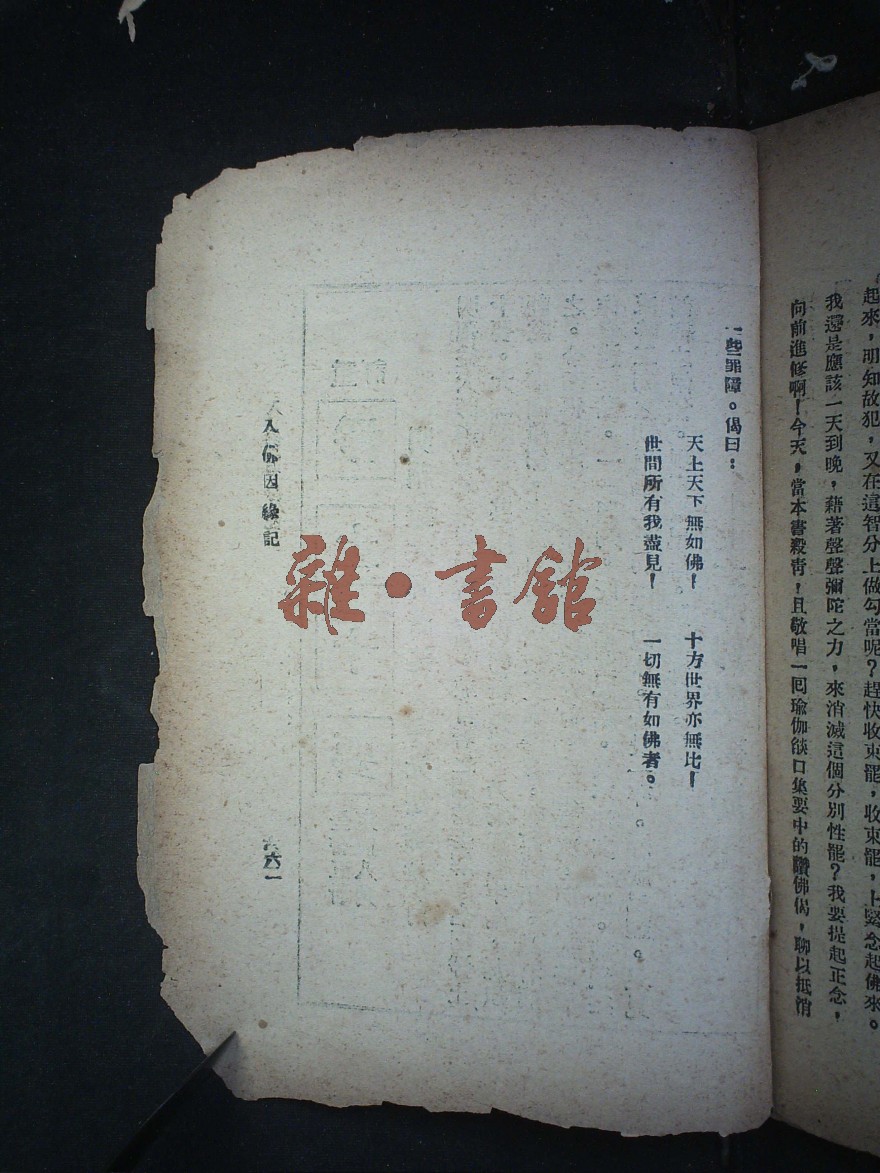 起來，明知故犯，又在這智分上做勾當呢？趕快收束罷，收束罷，上緊念起佛來。
我還是應該一天到晚，藉著聲聲彌陀之力，來消滅這個分別性罷？我要提起正念，
向前進修啊！今天，當本書殺靑！且敬唱一囘瑜伽燄口集要中的讚佛偈，聊以抵消
一些罪障。偈曰：
天上天下無如佛！　十方世界亦無比！
世間所有我盡見！　一切無有如佛者。
入佛因緣記
六一
雜·書館